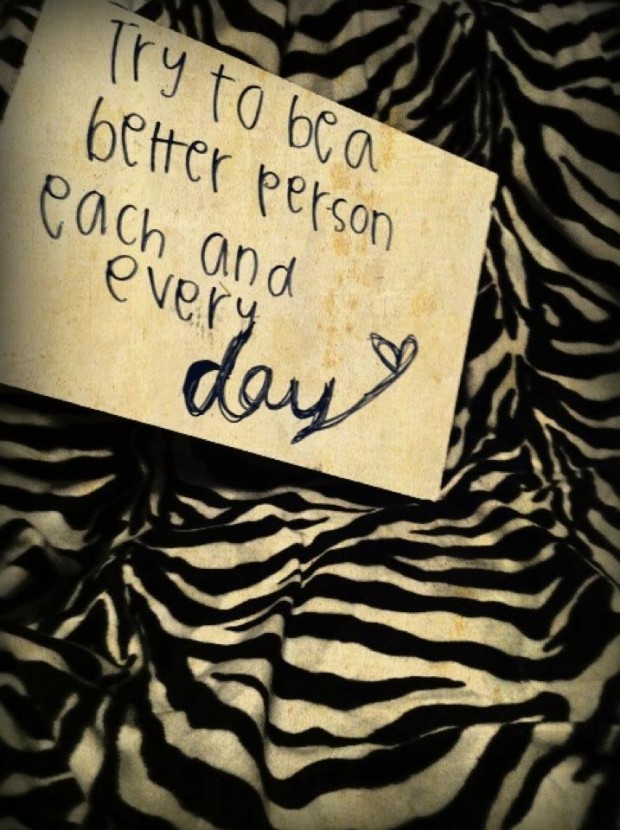 Try to be a
better person
each and
every
day